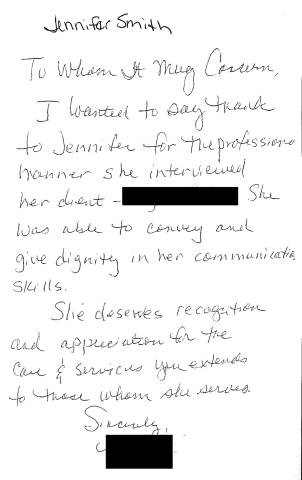 Jennifer Smith
To Whom It May Concern,
I wanted to say thank
to Jennifer for the professiona
manner she interviewed
her client - She
was able to convey and
give dignity in her communicatio
skills.
She deserves recognition
and appreciation for the
care & services you extends
to those whom she serves.
Sincerely,